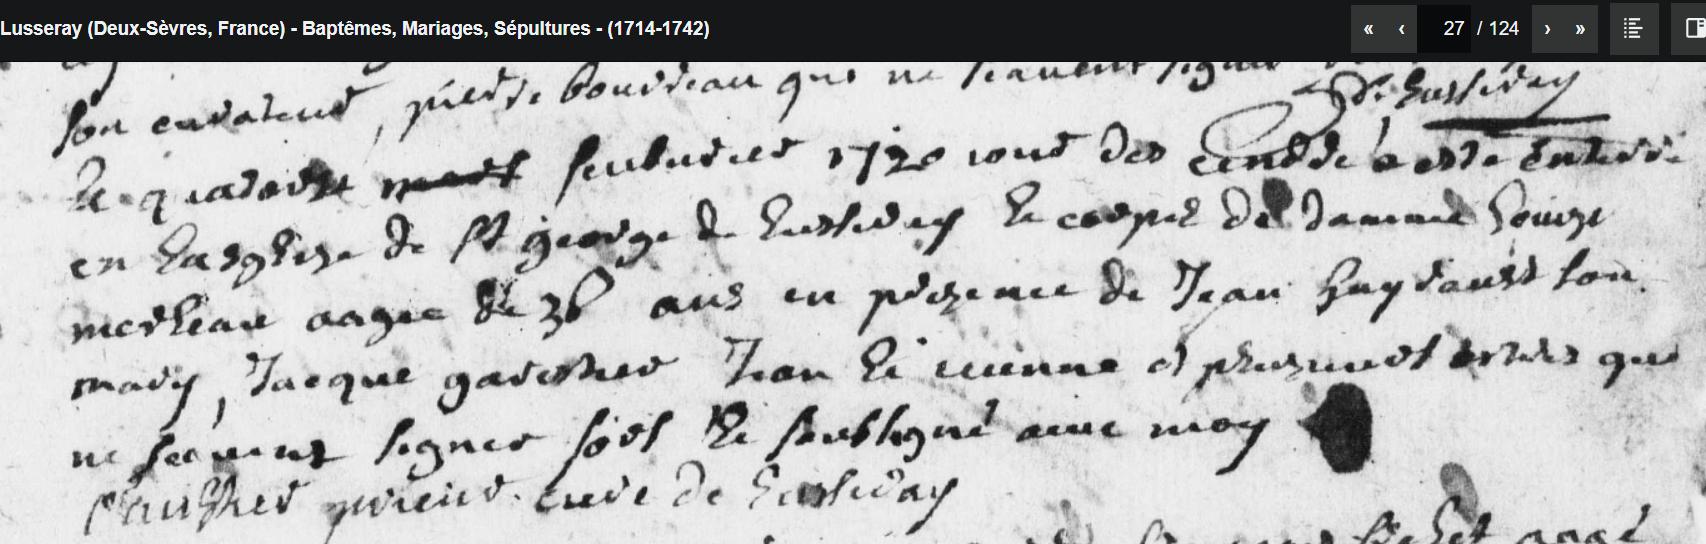 Lusseray (Deux-Sèvres, France) - Baptêmes, Mariages, Sépultures - (1714-1742)
« ‹ 27 / 124 › »
son curateur, pierre bourdeau qui ne scavent signer
de Lusseray
le quatorze feubvrier 1720 iour des cendre a este enterré
en lasglize de st george de Lusseray le corps de damme Louize
merleau aagee de 36 ans en prezence de Jean
son mary, Jacque garnier Jean et pluzieurs autres qui
ne scavent signer sors le soubsigné avec moy
prieur curé de Lusseray
aagé